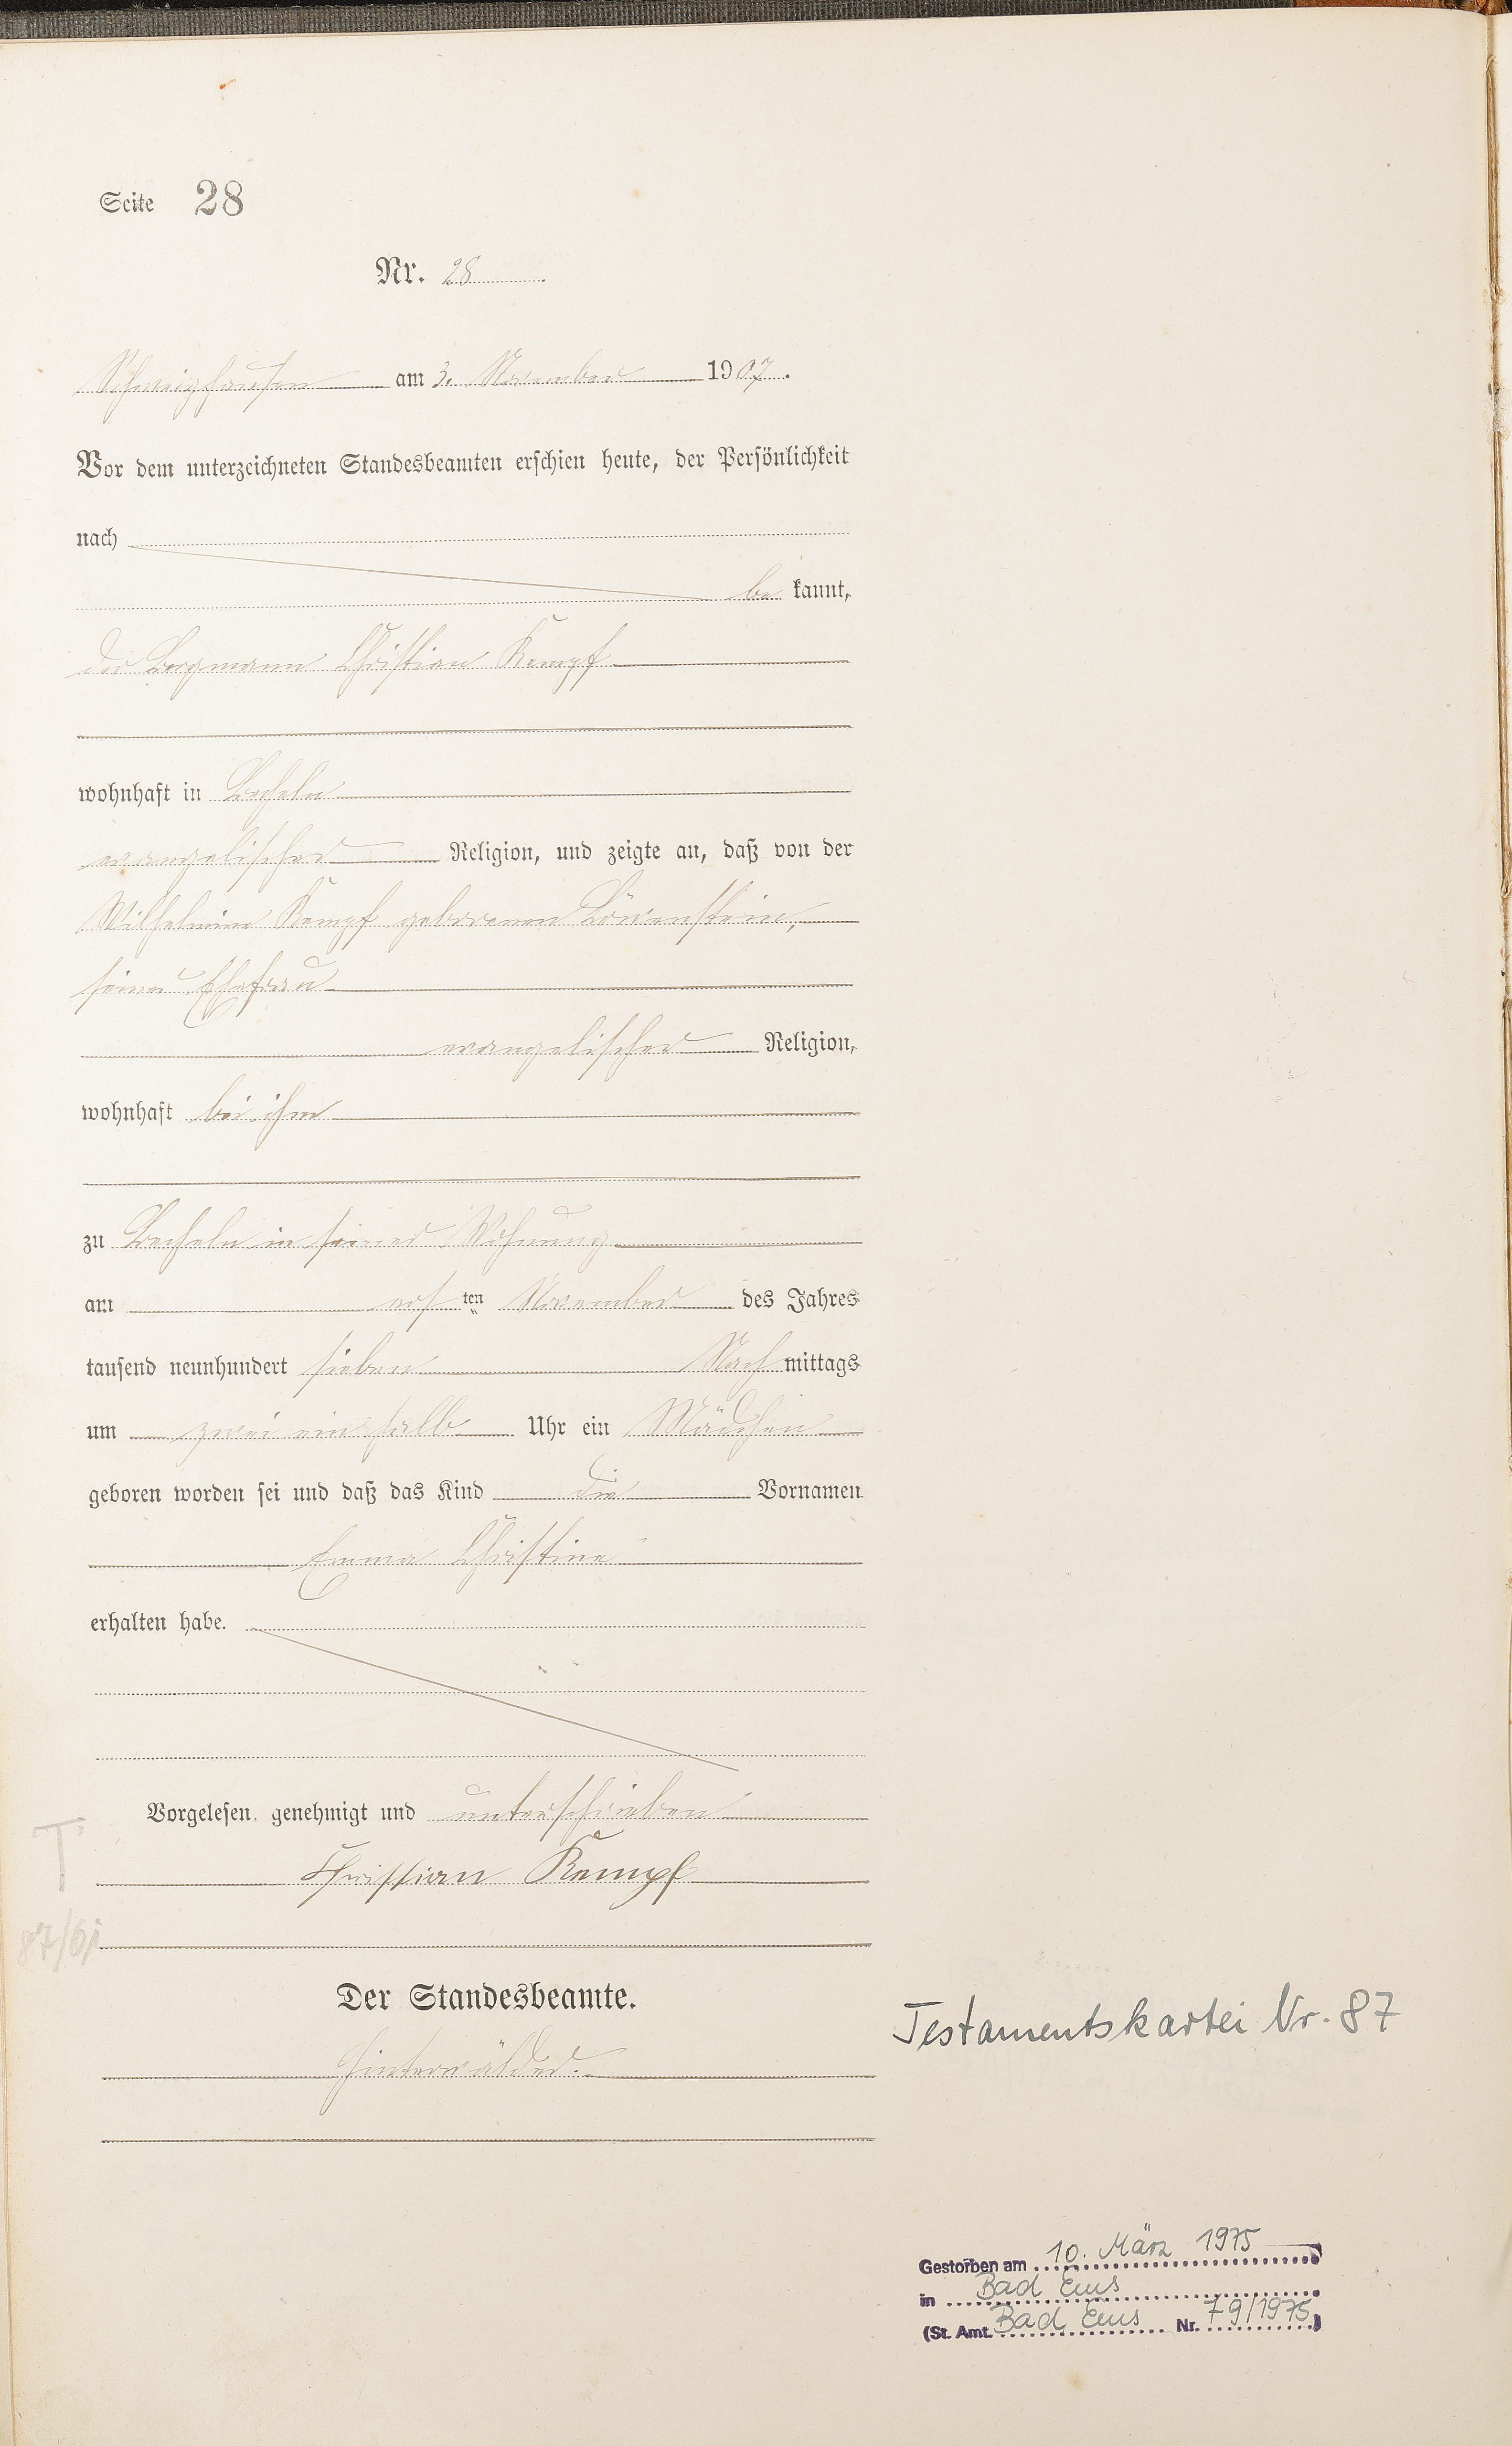 Seite 28
Nr. 28
Schweighausen am 3. November 1907.
Vor dem unterzeichneten Standesbeamten erschien heute, der Persönlichkeit
nach
be kannt,
der Bergmann Christian Kempf
wohnhaft in Becheln
evangelischer Religion, und zeigte an, daß von der
Wilhelmine Kempf geborenen Löwenstein,
seiner Ehefrau
evangelischer Religion,
wohnhaft bei ihm
zu Becheln in seiner Wohnung
am ersten November des Jahres
tausend neunhundert sieben Nachmittags
um zwei einhalb Uhr ein Mädchen
geboren worden sei und daß das Kind die Vornamen
Emma Christine
erhalten habe.
Vorgelesen, genehmigt und unterschrieben
Christian Kempf
T
Der Standesbeamte.
Hinterwälder.
Testamentskartei Nr. 87
Gestorben am 10. März 1975
in Bad Ems
(St. Amt. Bad Ems Nr. 79/1975)